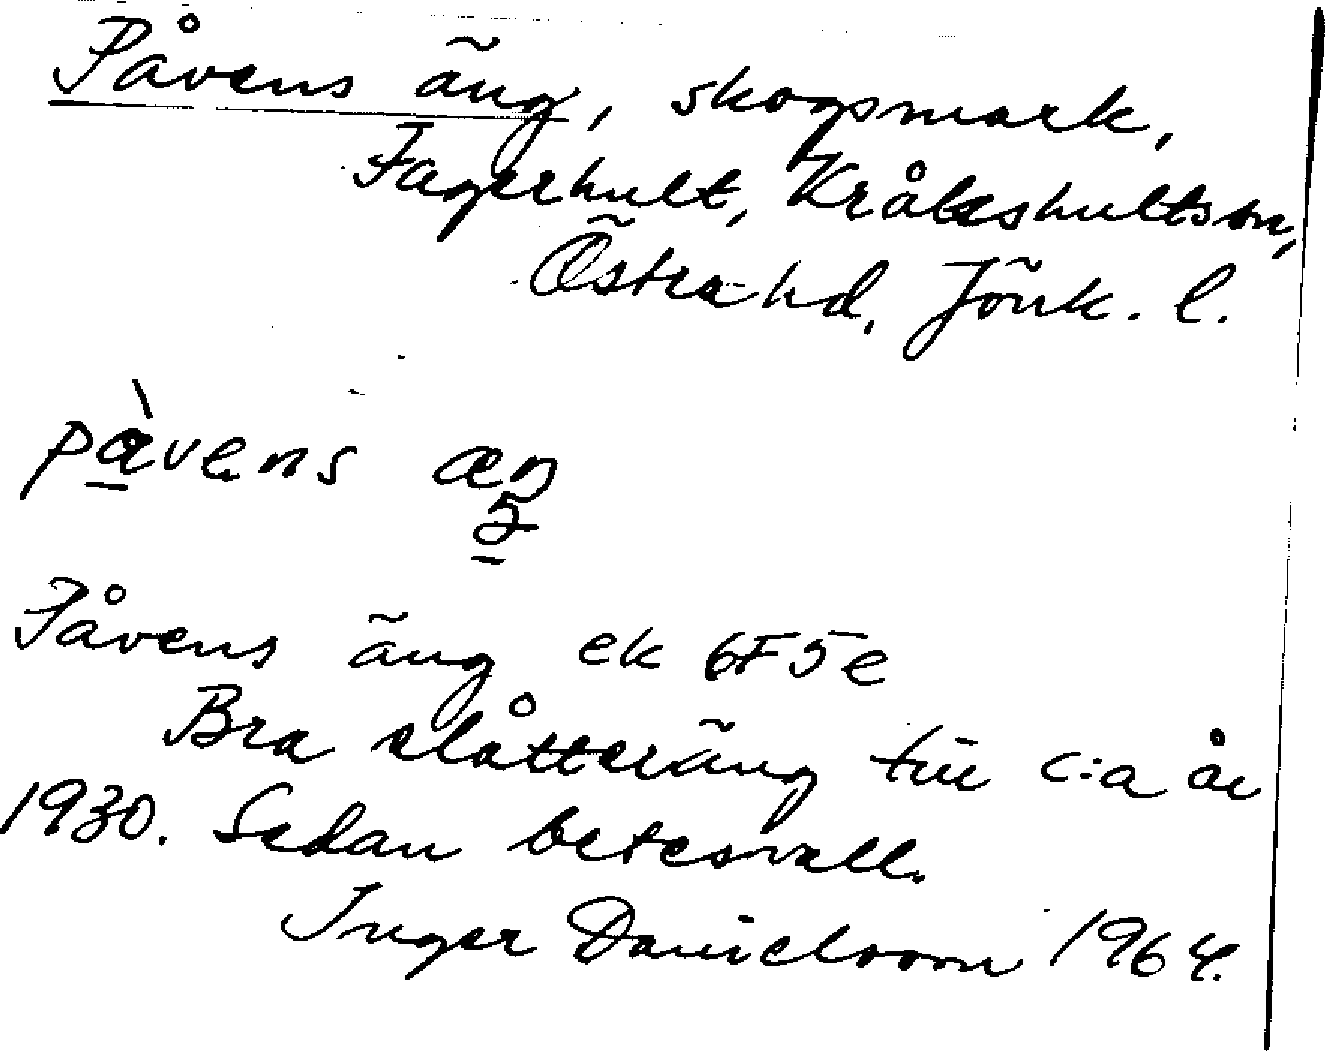 Påvens äng, skogsmark,
Fagerhult, Kråkshults sn,
Östra hd, Jönk. l.
pàvens æŋ
5
Påvens äng ek 6F5e
Bra slåtteräng till c:a år
1930. Sedan betesvall.
Inger Danielsson 1964.